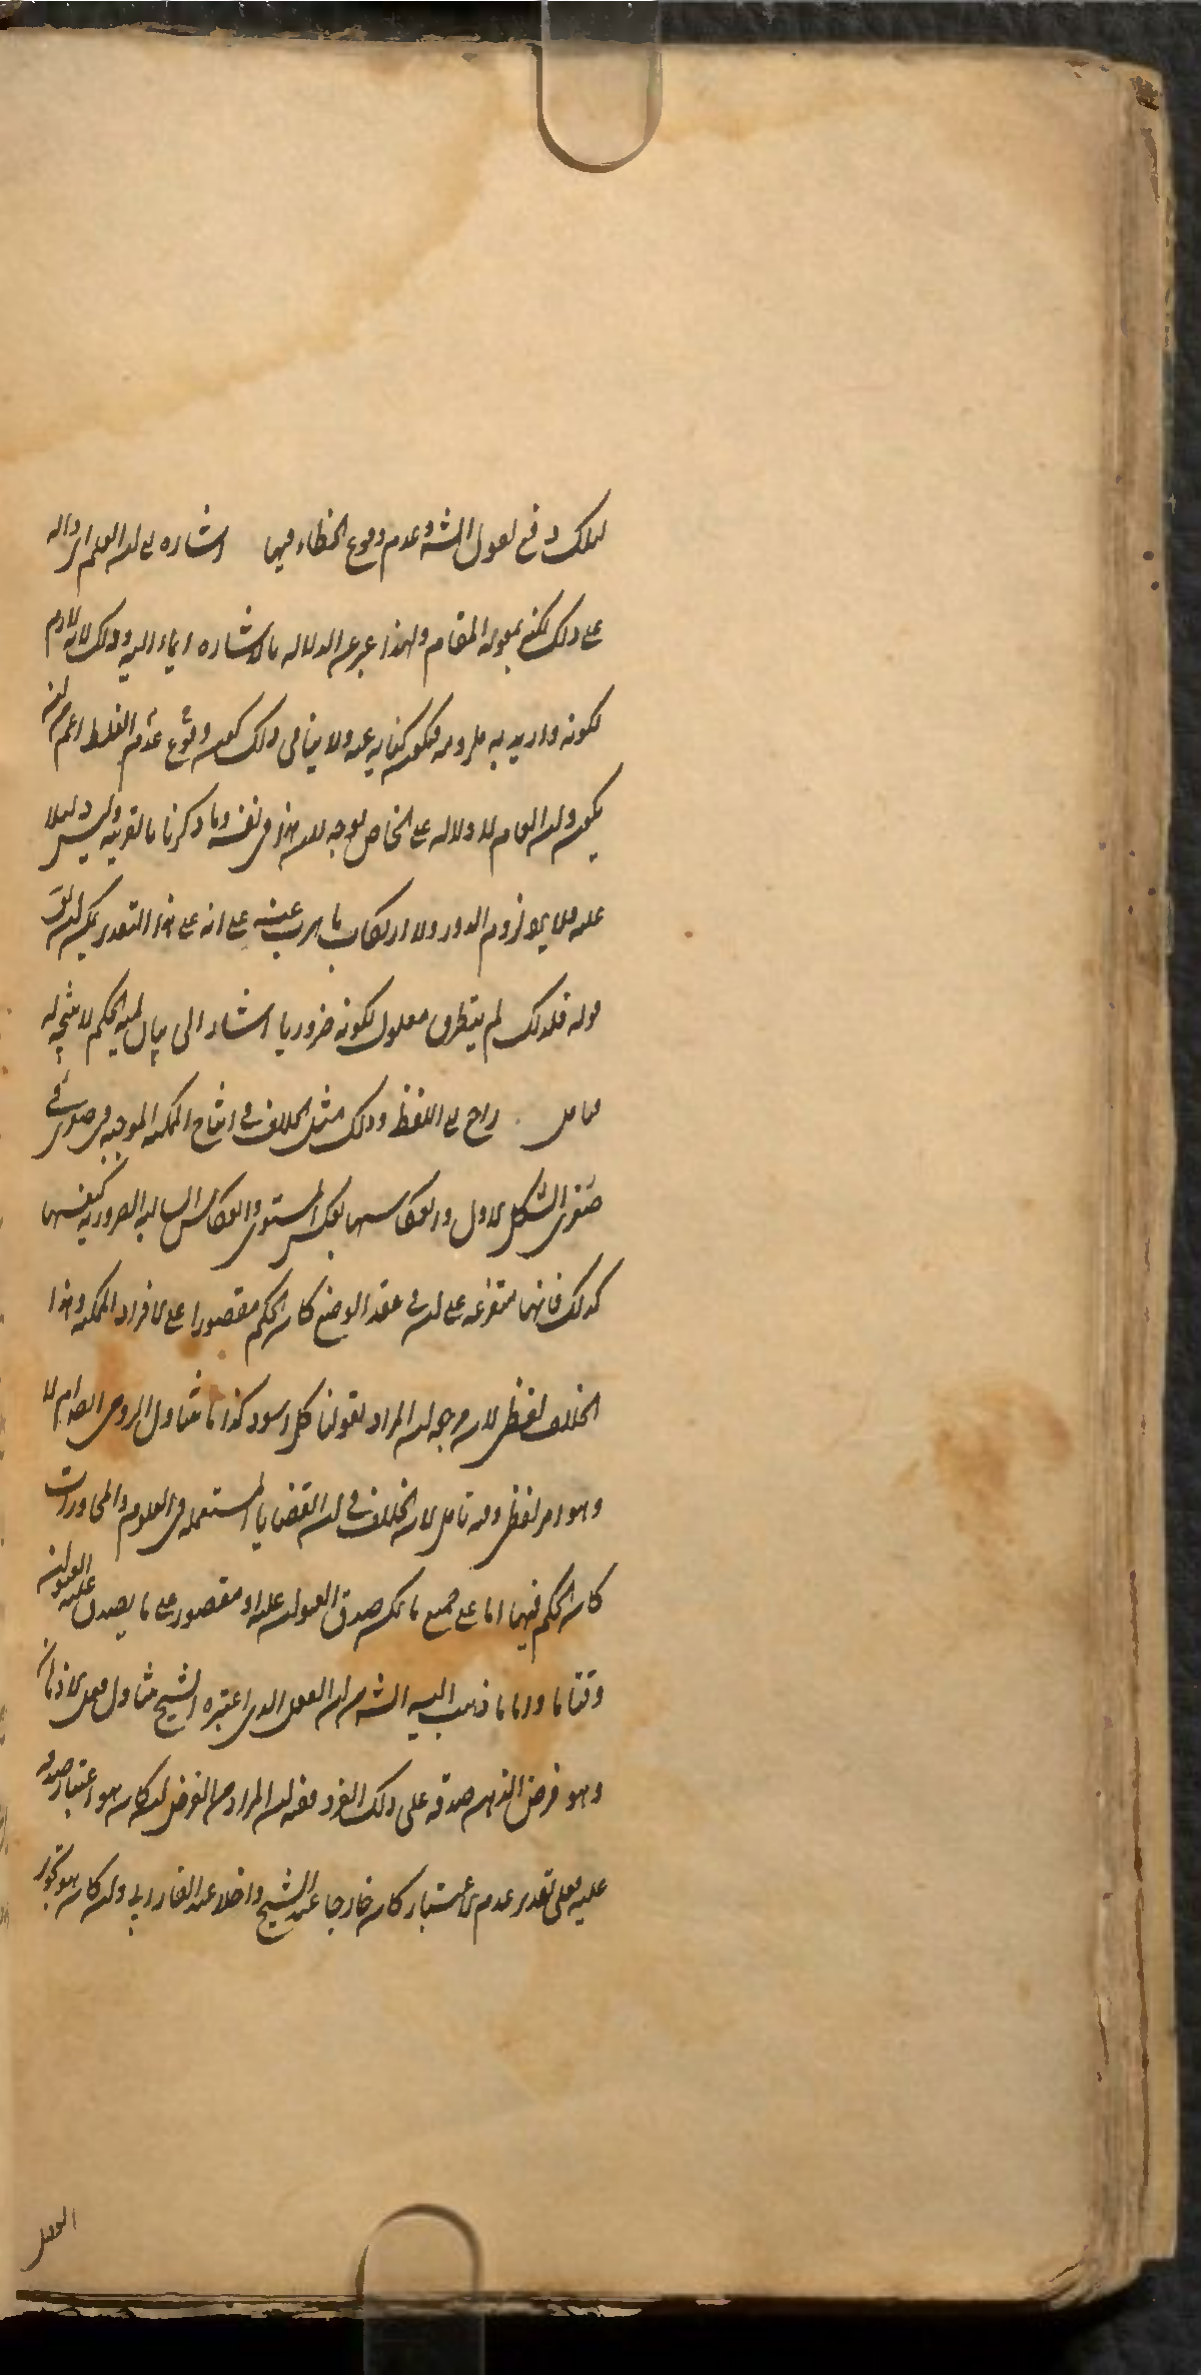 لذلك دفع لقول الشـ وعدم وقوع الخطاء فيها اشاره الى ان العلم اى داله
على ذلك لكن بمعونه المقام ولهذا عبر عن الدلاله بالاشاره ايماء اليه وذلك لانه لازم
لكونه واريد به ملزومه فيكون كنايه عنه ولا ينافى ذلك كون وقوع عدم الغلط اعم من ان
يكون وان العام لا دلاله على الخاص بوجه لان هذا فى نفسه وما ذكرنا بالقرينه وليس دليلا
عليه فلا يرد لزوم الدور ولا ارتكاب ما هرب عنه على انه على هذا التقدير يمكن ان يق
قوله فلذلك لم يتطرق معلول لكونه ضروريا اشار الى بيان لميه الحكم لا نتيجه له
فتامل راجع الى اللفظ وذلك مثل الخلاف فى انتاج الممكنه الموجبه فى
صغرى الشكل الاول وانعكاسها بعكس المستوى وانعكاس السالبه الضروريه كنفسها
كذلك فانهما متفرعه على ان فى عقد الوضع كان الحكم مقصورا على الافراد الممكنه وهذا
الخلاف لفظى لان مرجعه ان المراد بقولنا كل اسود كذا ما يتناول الرومى ام لا
وهو امر لفظى وفيه تامل لان الخلاف فى ان القضايا المستعمله فى العلوم والمحاورات
كان الحكم فيها اما على جميع ما يمكن صدق العنوان عليه او مقصور على ما يصدق عليه العنوان
وقتا ما واما ما ذهب اليه الشـ من ان الفعل الذى اعتبره الشيخ متناول فعل الاذهان
وهو فرض الذهن صدقه على ذلك الفرد ففيه ان المراد من الفرض ان كان هو اعتبار صدقه
عليه فعلى تقدير عدم الاعتبار كان خارجا عند الشيخ داخلا عند الفارابى وان كان هو تجويز
العقل